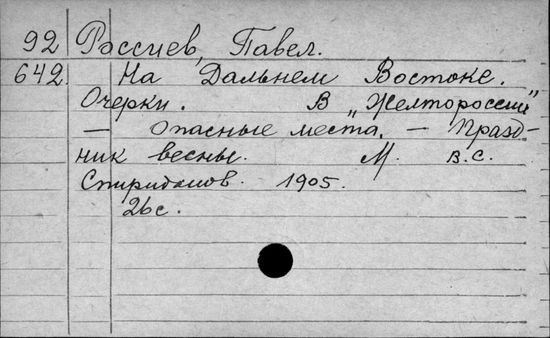 92 Россиев, Павел.
642. На Дальнем Востоке.
Очерки. В „Желтороссии"
— Опасные места. — Празд-
ник весны. М. В.С.
Спиридонов. 1905.
26 с.